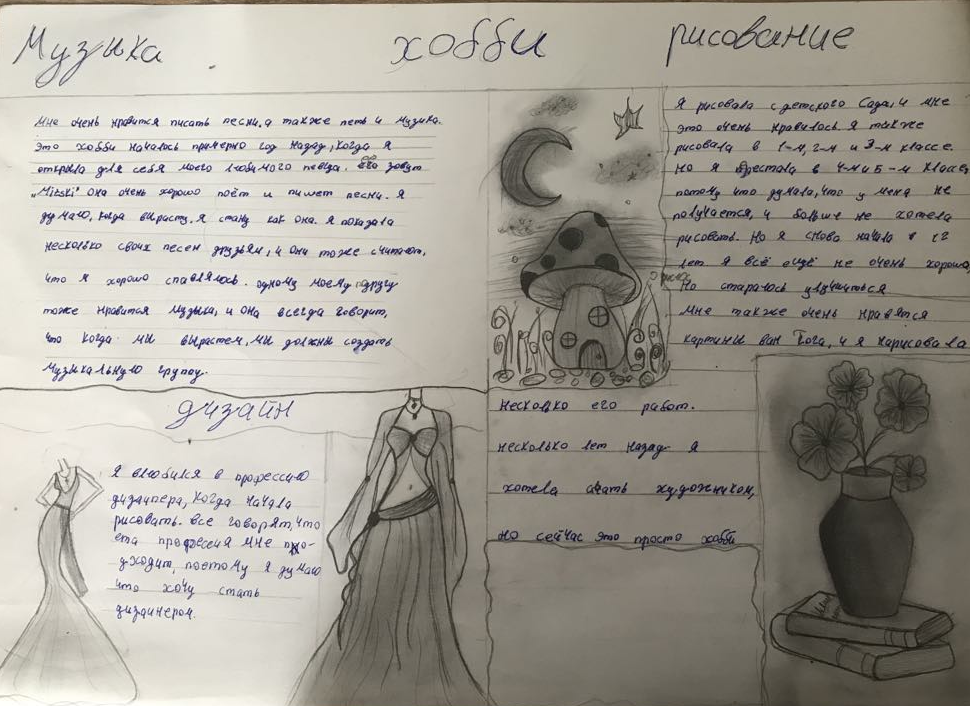 Музыка
хобби
рисование
Мне очень нравится писать песни, а также петь и музыка.
Это хобби началось примерно год назад, когда я
открыла для себя моего любимого певца. его зовут
„Mitski“ она очень хорошо поёт и пишет песни. Я
думаю, когда вырасту, я стану как она. Я показала
несколько своих песен друзьям, и они тоже считают,
что я хорошо спавлялюсь. одному моему другу
тоже нравится музыка, и она всегда говорит,
что когда мы вырастем, мы должны создать
музыкальную группу.
Я рисовала с детского Сада, и мне
это очень нравилось. Я также
рисовала в 1-м, 2-м и 3-м классе.
Но я брестала в 4-м и 5-м классе,
потому что думала, что у меня не
получается, и больше не хотела
рисовать. Но я снова начала в 12
лет я всё ещё не очень хорошо
Но стараюсь улучшиться
Мне также очень нравятся
картины ван Гога, и я нарисовала
несколько его работ.
несколько лет назад я
хотела стать художником,
но сейчас это просто хобби
дизайн
Я влюбился в профессию
дизайнера, когда начала
рисовать. все говорят, что
ета професия мне по-
дходит, поетому я думаю
что хочу стать
дизайнером.